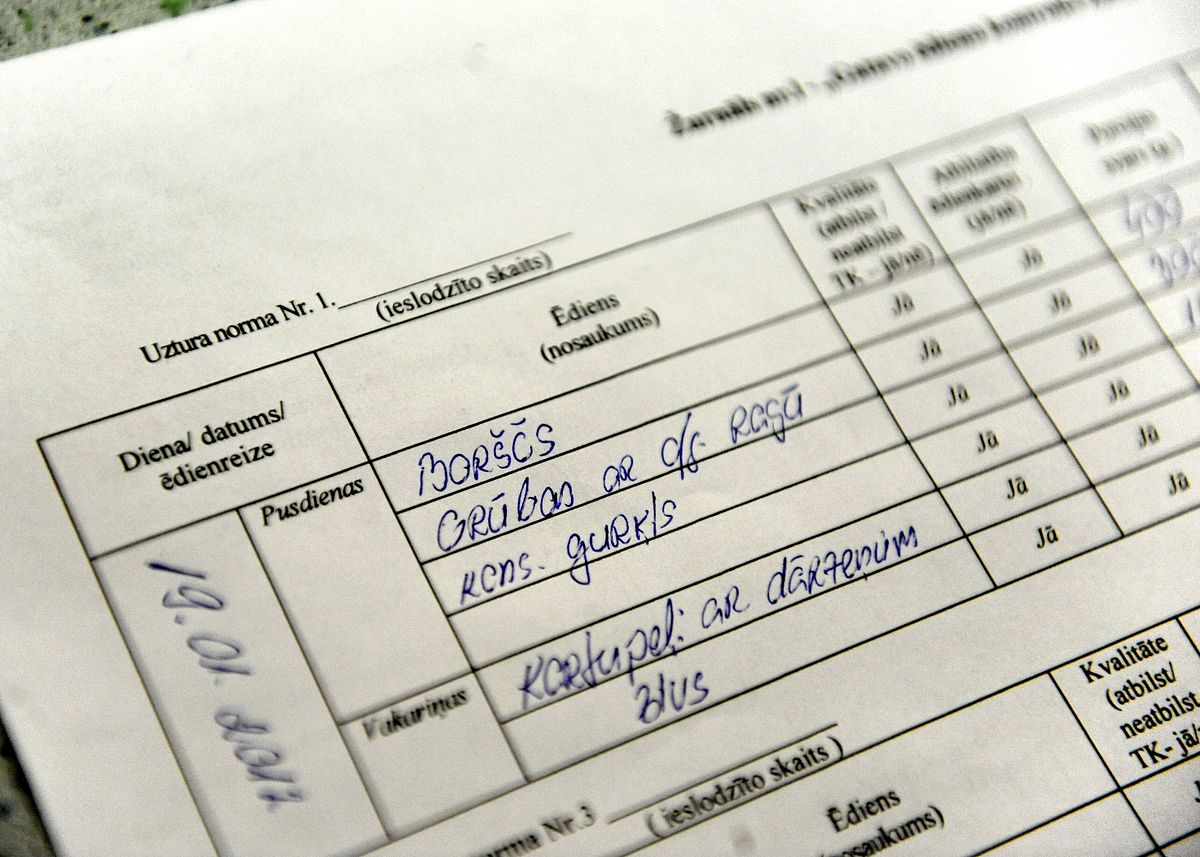 Žurnāls nr.1 - „Gatavo ēdienu kontroles
Uztura norma Nr. 1.
(ieslodzīto skaits)
Diena/ datums/
ēdienreize
Ēdiens
(nosaukums)
Kvalitāte
(atbilst /
neatbilst
TK – jā/nē)
Atbilstība
ēdienkartei
(jā/nē)
Porcijas
svars (g)
19.01.2017
Pusdienas
Borščs
Jā
Jā
400
Grūbas ar d/g ragū
Jā
Jā
300
kons. gurķis
Jā
Jā
Jā
Jā
Vakariņas
Kartupeļi ar dārzeņiem
Jā
Jā
zivs
Jā
Jā
norma Nr.3
(ieslodzīto skaits )
Ēdiens
(nosaukums)
Kvalitāte
(atbilst/
neatbilst
TK- jā/